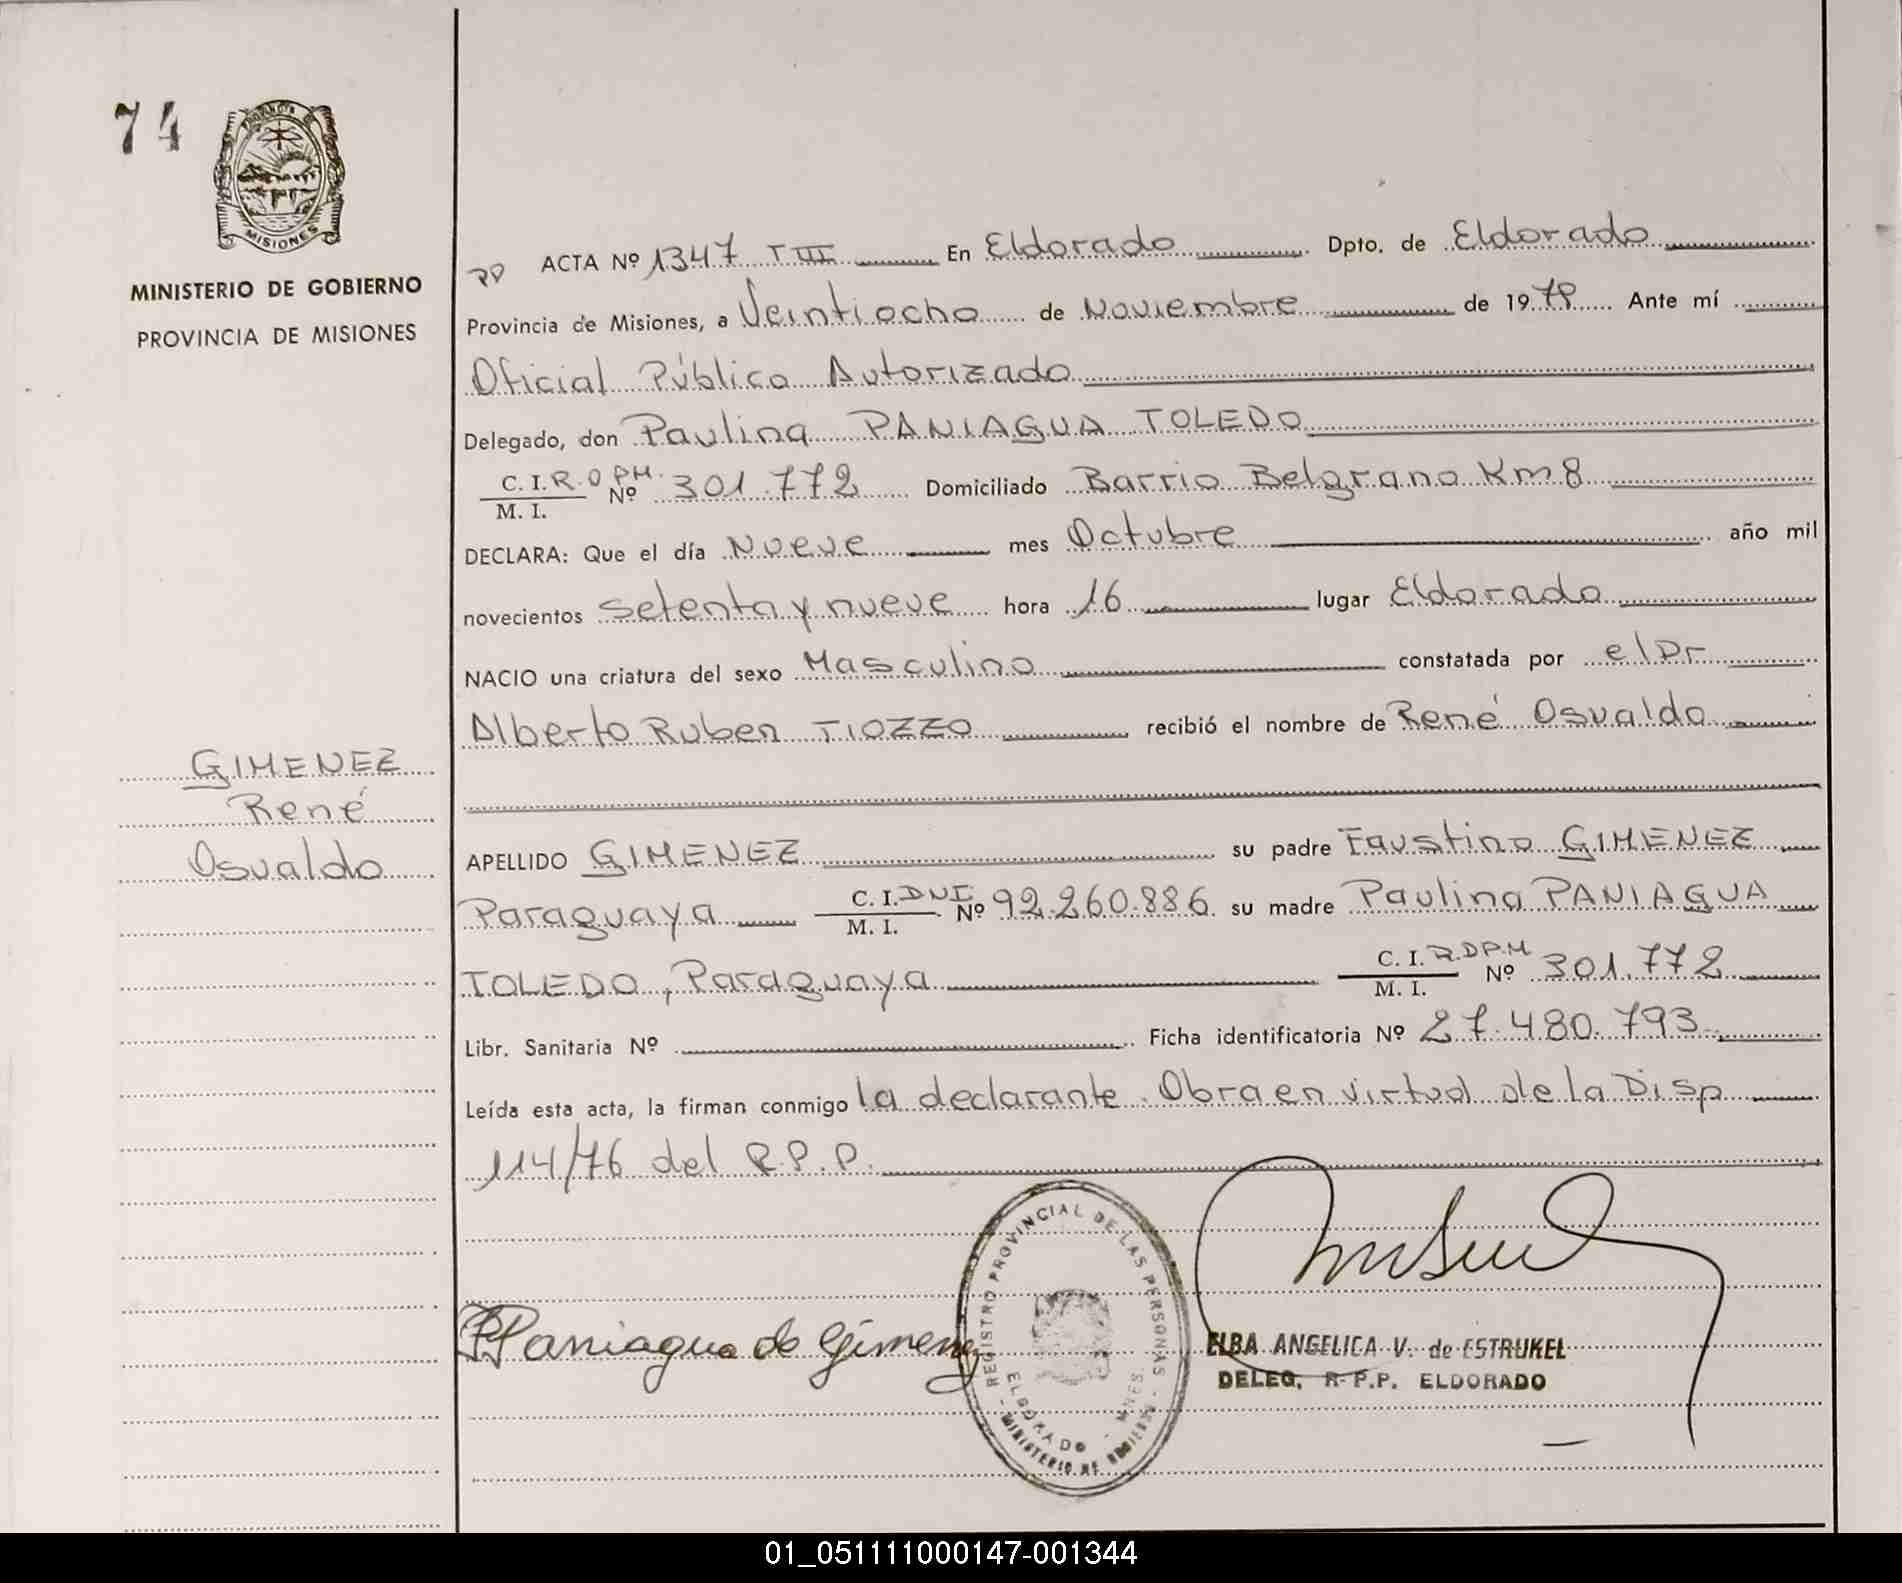 74
MISIONES
MINISTERIO DE GOBIERNO
PROVINCIA DE MISIONES
ACTA Nº 1347 T III En Eldorado Dpto. de Eldorado
Provincia de Misiones, a Veintiocho de Noviembre de 1979 Ante mí
Oficial Público Autorizado
Delegado, don Paulina PANIAGUA TOLEDO
C. I. R.D P.M. Nº 301.772 Domiciliado Barrio Belgrano Km 8
M. I.
DECLARA: Que el día Nueve mes Octubre año mil
novecientos setenta y nueve hora 16 lugar Eldorado
NACIO una criatura del sexo Masculino constatada por el Dr
Alberto Ruben TIOZZO recibió el nombre de René Osvaldo
GIMENEZ
René
Osvaldo
APELLIDO GIMENEZ su padre Faustino GIMENEZ
Paraguaya C. I. DNI Nº 92.260.886 su madre Paulina PANIAGUA
M. I.
TOLEDO, Paraguaya C. I. R.D P.M Nº 301.772
M. I.
Libr. Sanitaria Nº Ficha identificatoria Nº 27.480.793
Leída esta acta, la firman conmigo la declarante. Obra en virtud de la Disp
114/76 del R.P.P.
REGISTRO PROVINCIAL DE LAS PERSONAS
ELDORADO - MNES.
MINISTERIO DE GOBIERNO
P Paniagua de Gimenez
ELBA ANGELICA V. de ESTRUKEL
DELEG. R.P.P. ELDORADO
01_051111000147-001344